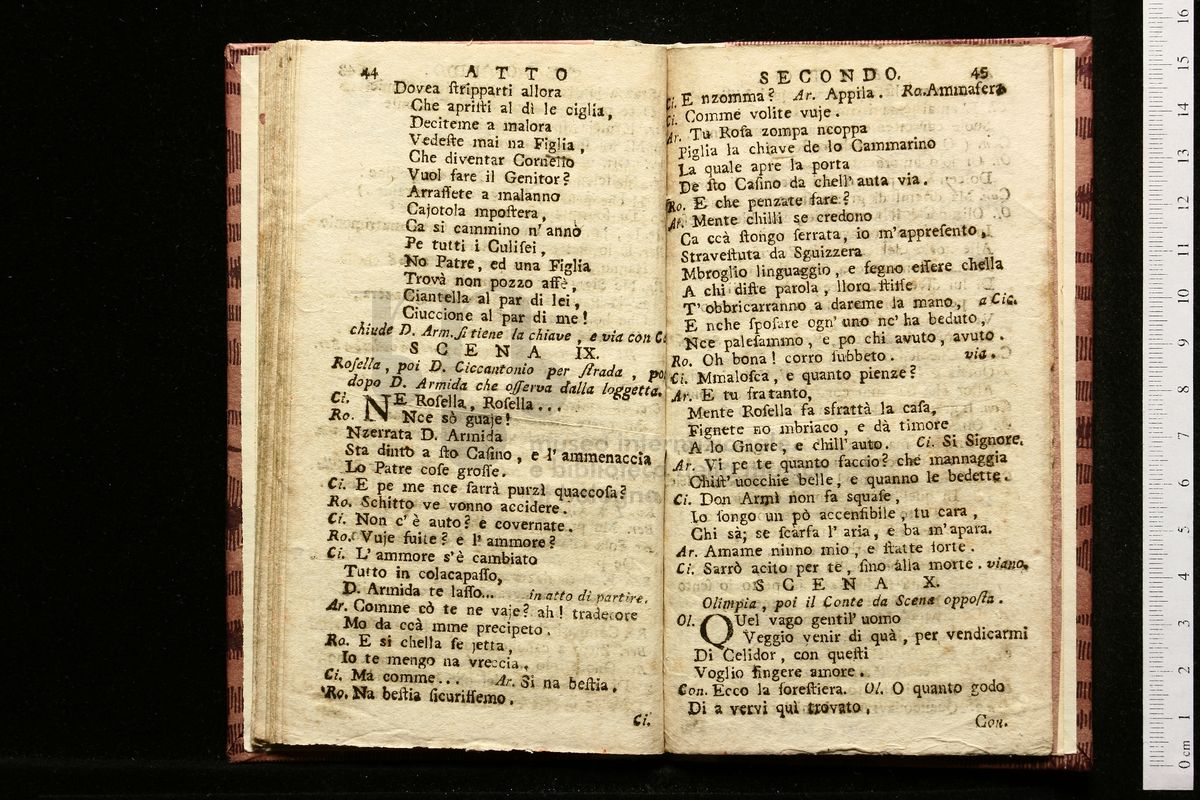 44 A T T O
Dovea ſtripparti allora
Che apriſti al dì le ciglia,
Deciteme a malora
Vedeſte mai na Figlia,
Che diventar Cornello
Vuol fare il Genitor?
Arraſſete a malanno
Cajotola mpoſtera,
Ca si cammino n' anno
Pe tutti i Culiſei,
No Patre, ed una Figlia
Trovà non pozzo affè,
Ciantella al par di lei,
Ciuccione al par di me!
chiude D. Arm. ſi tiene la chiave, e via con C.
S C E N A IX.
Roſella, poi D. Ciccantonio per ſtrada, poi
dopo D. Armida che oſſerva dalla loggetta.
Ci. NE Roſella, Roſella...
Ro. Nce sò guaje!
Nzerrata D. Armida
Sta dinto a ſto Caſino, e l' ammenaccia
Lo Patre coſe groſſe.
Ci. E pe me nce ſarrà purzì quaccoſa?
Ro. Schitto ve vonno accidere.
Ci. Non c' è auto? e covernate.
Ro. Vuje ſuite? e l' ammore?
Ci. L' ammore s' è cambiato
Tutto in colacapaſſo,
D. Armida te laſſo... in atto di partire.
Ar. Comme cò te ne vaje? ah! tradetore
Mo da ccà mme precipeto.
Ro. E si chella ſe jetta,
Io te mengo na vreccia.
Ci. Ma comme... Ar. Si na beſtia.
Ro. Na beſtia ſicuriſſemo.
Ci.
SECONDO. 45
Ci. E nzomma? Ar. Appila. Ro. Ammafera
Ci. Comme volite vuje.
Ar. Tu Roſa zompa ncoppa
Piglia la chiave de lo Cammarino
La quale apre la porta
De ſto Caſino da chell' auta via.
Ro. E che penzate fare?
Ar. Mente chilli se credono
Ca ccà ſtongo ſerrata, io m' appreſento,
Straveſtuta da Sguizzera
Mbroglio linguaggio, e fegno eſſere chella
A chi diſte parola, lloro ſtiſſe
T' obbricarranno a dareme la mano, a Cic.
E nche ſpoſare ogn' uno nc' ha beduto,
Nce paleſammo, e po chi avuto, avuto.
Ro. Oh bona! corro ſubbeto. via.
Ci. Mmaloſca, e quanto pienze?
Ar. E tu fratanto,
Mente Roſella fa sfrattà la caſa,
Fignete no mbriaco, e dà timore
A lo Gnore, e chill' auto. Ci. Si Signore.
Ar. Vi pe te quanto faccio? che mannaggia
Chiſt' uocchie belle, e quanno le bedette.
Ci. Don Armì non fa squaſe,
Io ſongo un pò accenſibile, tu cara,
Chi sà; se ſcarfa l' aria, e ba m' apara.
Ar. Amame ninno mio, e ſtatte forte.
Ci. Sarrò acito per te, ſino alla morte. viano.
S C E N A X.
Olimpia, poi il Conte da Scena oppoſta.
Ol. QUel vago gentil' uomo
Veggio venir di quà, per vendicarmi
Di Celidor, con queſti
Voglio fingere amore.
Con. Ecco la foreſtiera. Ol. O quanto godo
Di a vervi quì trovato,
Con.